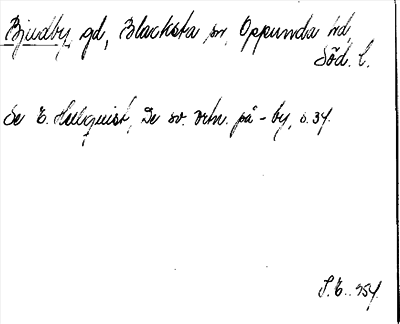 Bjudby, gd, Blacksta sn, Oppunda hd,
Söd. l.
Se E. Hellquist, De sv. ortn. på -by, s. 34.
S.E. 954.